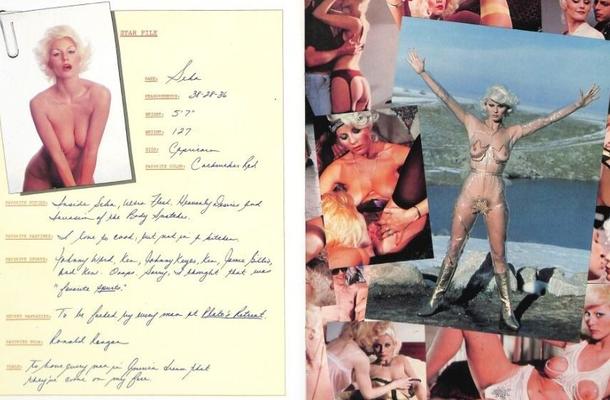 STAR FILE
NAME: Seka
MEASUREMENTS: 38-28-36
HEIGHT: 5'7"
WEIGHT: 127
SIGN: Capricorn
FAVORITE COLOR: Cardmember Red
FAVORITE MOVIES: Inside Seka, Ultra Flesh, Heavenly Desire and
Invasion of the Body Snatcher.
FAVORITE PASTIMES: I love to cook, but not in a kitchen.
FAVORITE SPORTS: Johnny Ward, Ken, Johnny Keyes, Ken, Jamie Gillis,
and Ken. Ooops. Sorry, I thought that was
"favorite spurts".
SECRET FANTASIES: To be fucked by every man at Plato's Retreat.
FAVORITE
Ronald Reagan
GOALS: To have every man in America dream that
they've come on my face.